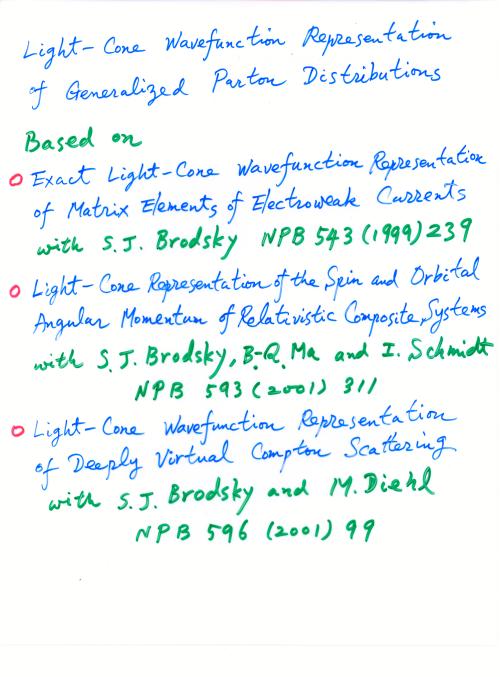 Light-Cone Wavefunction Representation
of Generalized Parton Distributions
Based on
Exact Light-Cone Wavefunction Representation
of Matrix Elements of Electroweak Currents
with S.J. Brodsky NPB 543 (1999) 239
Light-Cone Representation of the Spin and Orbital
Angular Momentum of Relativistic Composite Systems
with S.J. Brodsky, B-Q. Ma and I. Schmidt
NPB 593 (2001) 311
Light-Cone Wavefunction Representation
of Deeply Virtual Compton Scattering
with S.J. Brodsky and M. Diehl
NPB 596 (2001) 99